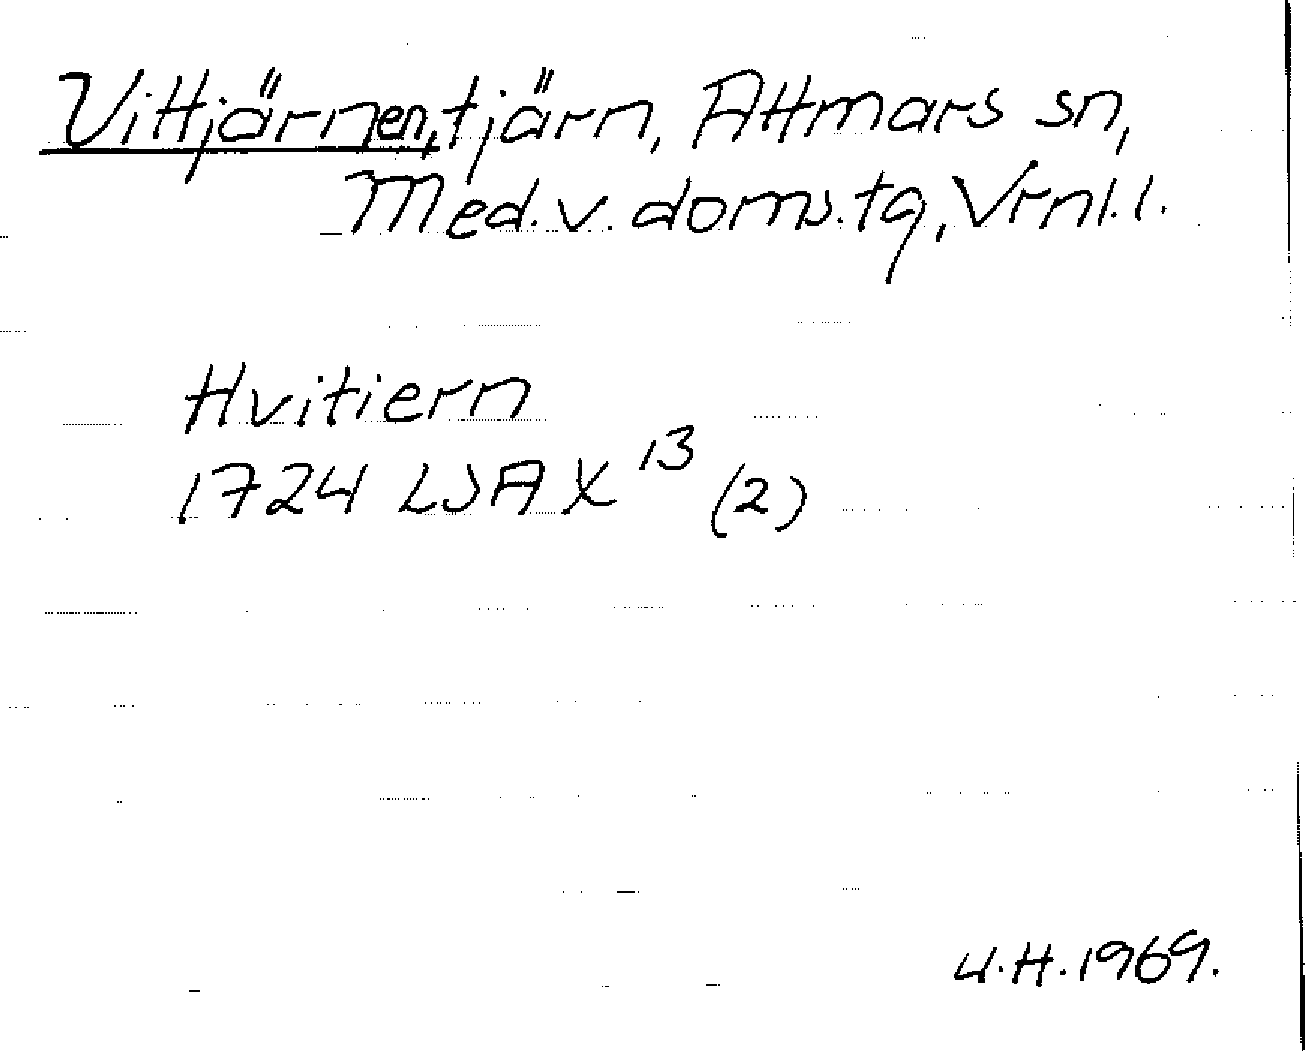 Vittjärnen, tjärn, Attmars sn,
Med. v. doms. tg, Vrnl. l.
Hvitiern
1724 LSA X 13 (2)
U.H. 1969.